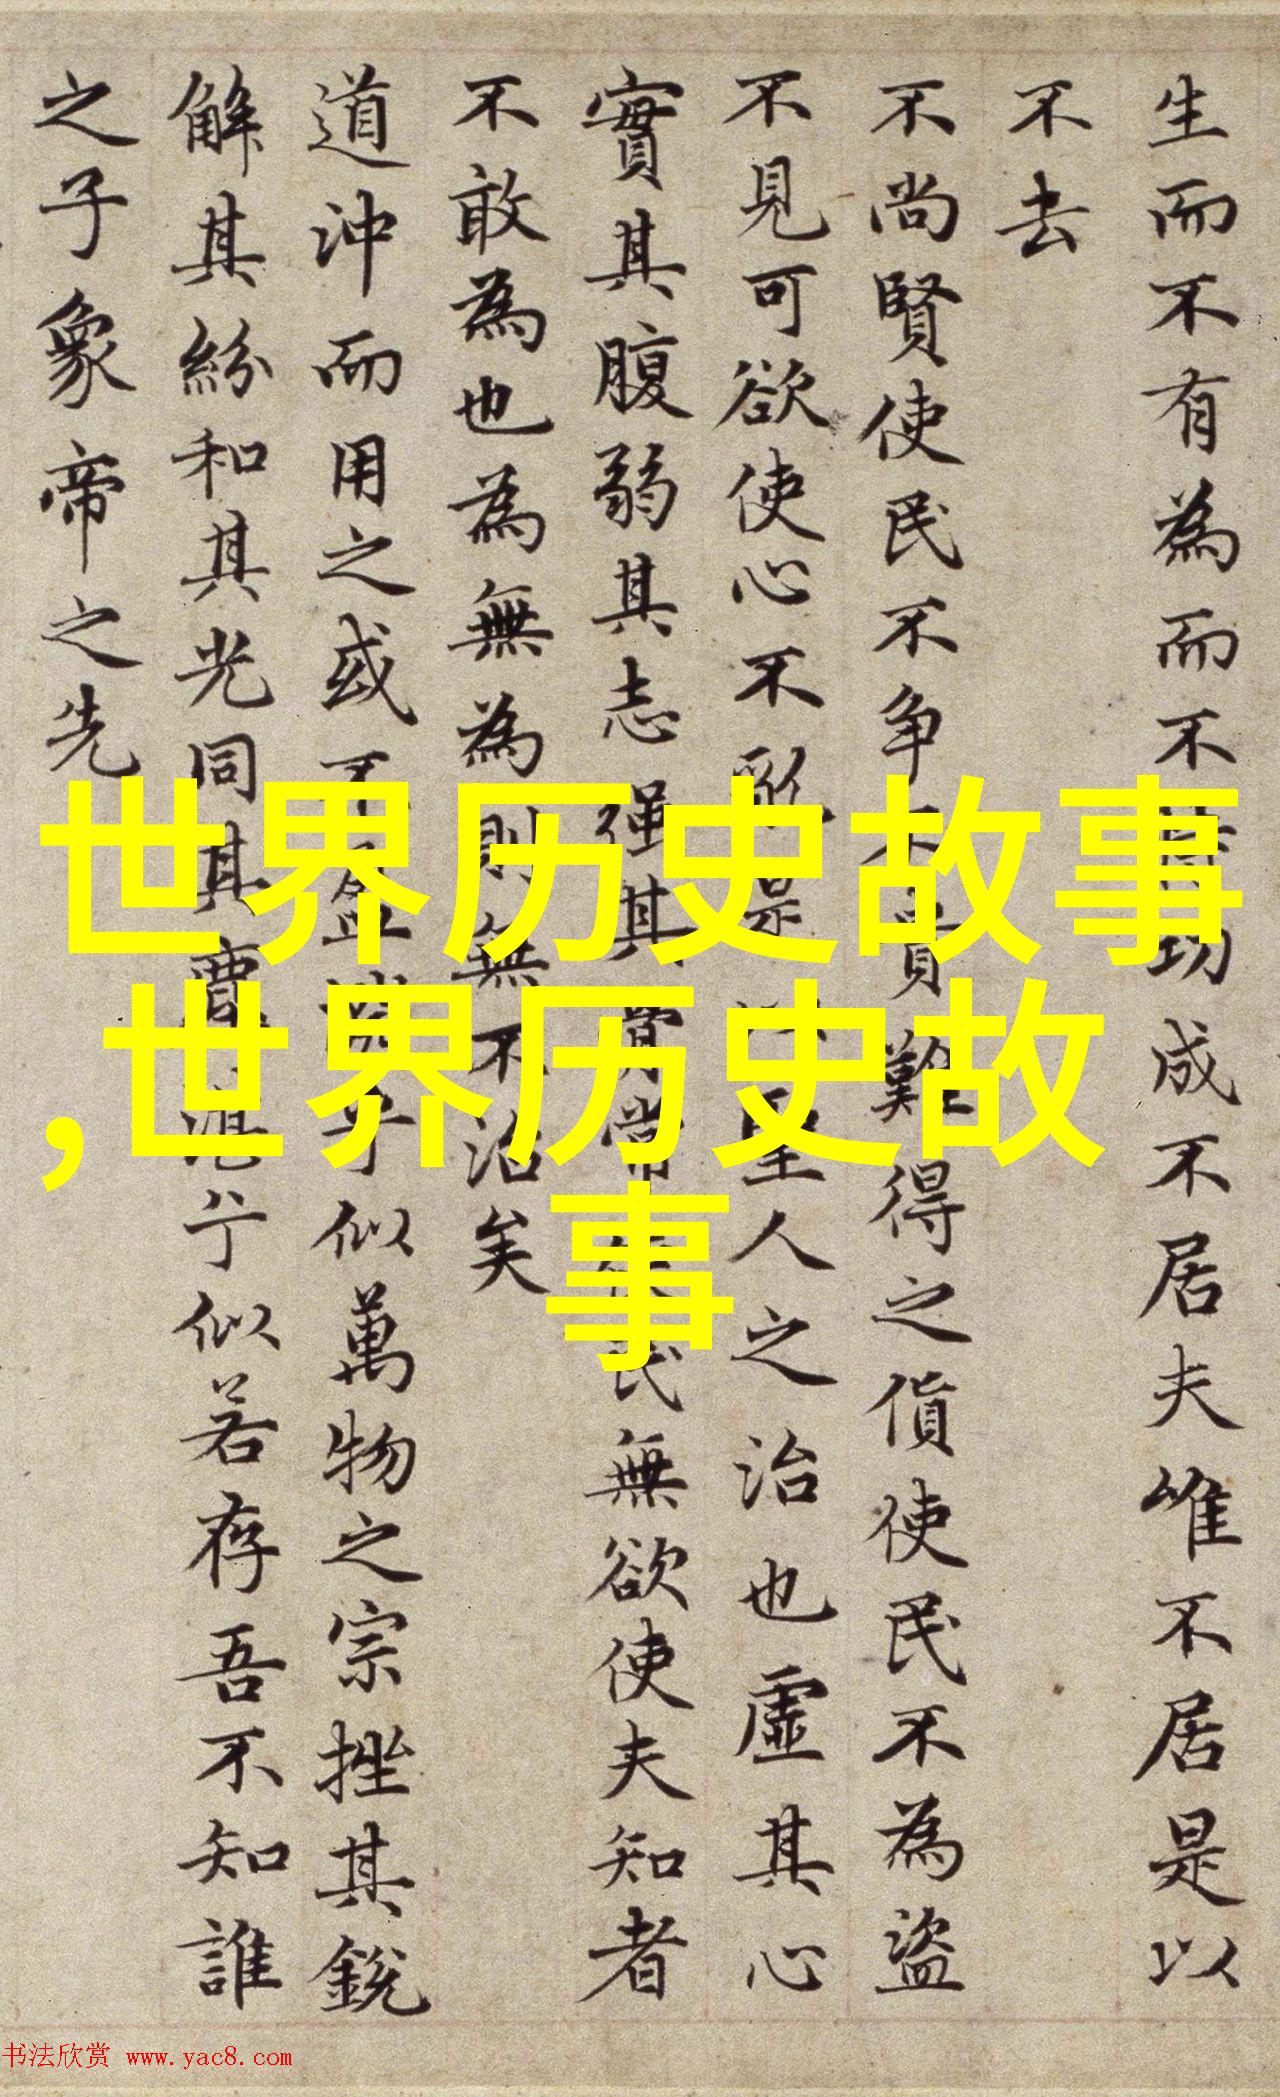 生而不有為而不功成不居夫唯不居是以
不去
不尚賢使民不争不貴難得之貨使民不為盗
不見可欲使心不亂是聖人之治也虛其心
實其腹弱其志强其骨常使民無欲使夫知者
不敢為也為無為則無不治矣
道沖而用之或不盈乎似萬物之宗挫其銳
解其紛和其光同其湛兮似若存吾不知誰
之子象帝之先
世界历史故事
,世界历史故
事
书法欣赏 www.yac8.com